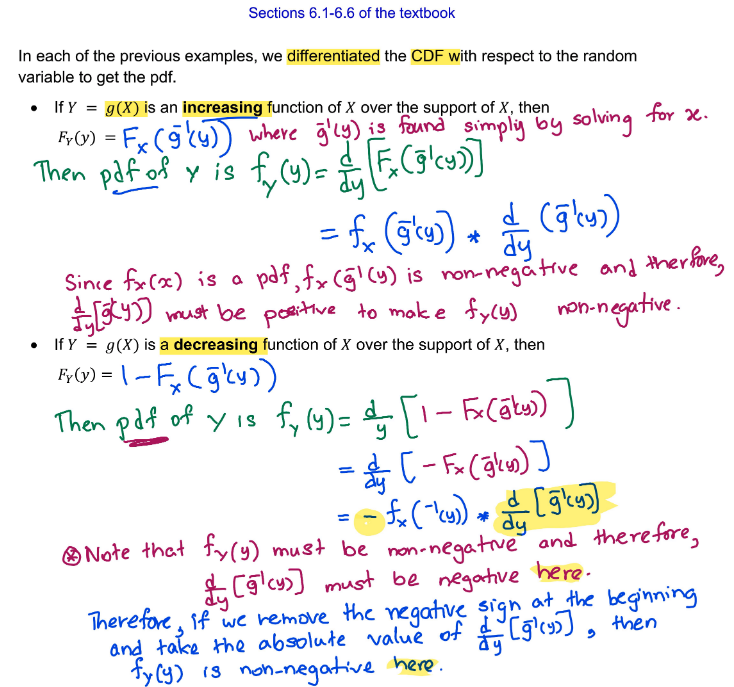 Sections 6.1-6.6 of the textbook
In each of the previous examples, we differentiated the CDF with respect to the random
variable to get the pdf.
• If Y = g(X) is an increasing function of X over the support of X, then
F_Y(y) = F_X(g⁻¹(y)) where g⁻¹(y) is found simply by solving for x.
Then pdf of Y is f_Y(y) = d/dy [F_X(g⁻¹(y))]
= f_X (g⁻¹(y)) * d/dy (g⁻¹(y))
Since f_X(x) is a pdf, f_X(g⁻¹(y) is non-negative and therfore,
d/dy [g⁻¹(y)] must be positive to make f_Y(y) non-negative.
• If Y = g(X) is a decreasing function of X over the support of X, then
F_Y(y) = 1 - F_X(g⁻¹(y))
Then pdf of Y is f_Y(y) = d/y [1 - F_X(g⁻¹(y))]
= d/dy [- F_X(g⁻¹(y))]
= - f_X(⁻¹(y)) * d/dy [g⁻¹(y)]
⊛ Note that f_Y(y) must be non-negative and therefore,
d/dy [g⁻¹(y)] must be negative here.
Therefore, if we remove the negative sign at the beginning
and take the absolute value of d/dy [g⁻¹(y)], then
f_Y(y) is non-negative here.